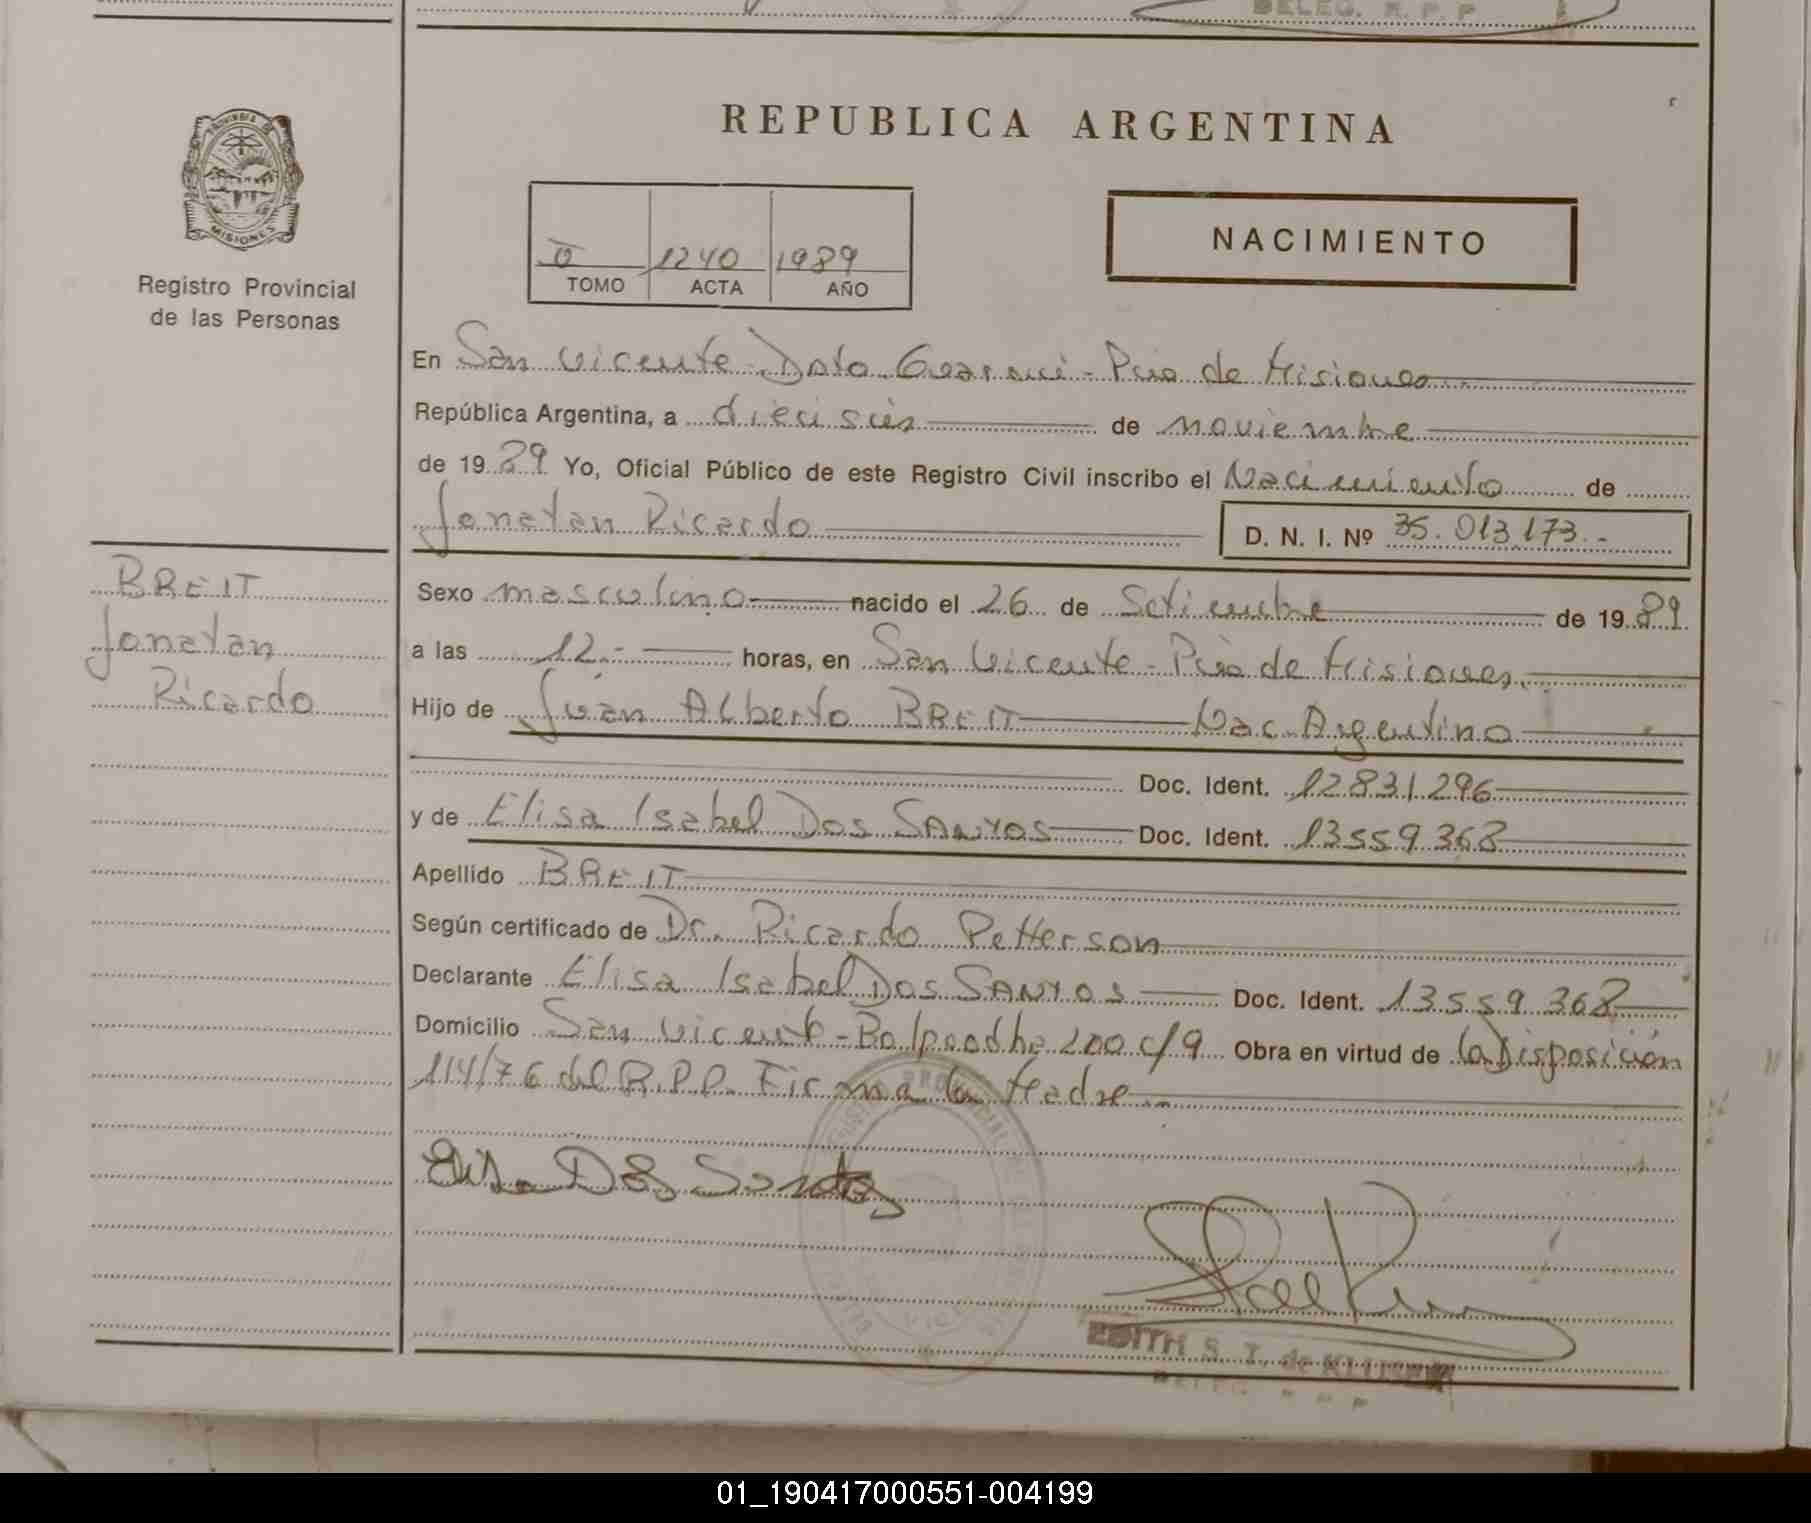 DELEG. R. P. P.
PROVINCIA DE
MISIONES
Registro Provincial
de las Personas
BREIT
Jonatan
Ricardo
REPUBLICA ARGENTINA
1240 1989
TOMO ACTA AÑO
NACIMIENTO
En San Vicente - Dpto Guaraní - Pcia de Misiones
República Argentina, a dieciseis de noviembre
de 1989 Yo, Oficial Público de este Registro Civil inscribo el Nacimiento de
Jonatan Ricardo D. N. I. Nº 35.013.173.-
Sexo masculino nacido el 26 de Setiembre de 1989
a las 12.- horas, en San Vicente - Pcia de Misiones.
Hijo de Juan Alberto BREIT Nac. Argentino
Doc. Ident. 12831296
y de Elisa Isabel DOS SANTOS Doc. Ident. 13559368
Apellido BREIT
Según certificado de Dr. Ricardo Petterson
Declarante Elisa Isabel DOS SANTOS Doc. Ident. 13559368
Domicilio San Vicente - 200 c/9 Obra en virtud de la Disposición
114/76 del R.P.P. Firma la Madre.-
Elisa Dos Santos
EDITH S. T. de KLUSEN
DELEG. R. P. P.
01_190417000551-004199